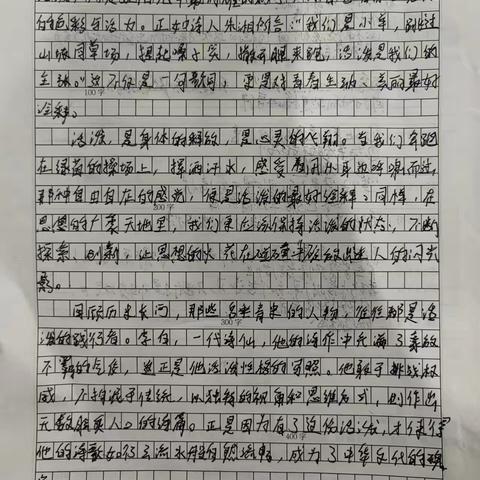 的色彩与活力。正如诗人朱湘所言:"我们是小羊,跑过
山坡同草场,提起嗓子笑,撒开腿来跑,活泼是我们的
主张。"这不仅是一句歌词,更是对青春生活、美丽最好
诠释。
100字
活泼,是身体的释放,是心灵的
在绿茵的操场上,挥洒汗水,感受着风从耳边呼啸而过,
那种自由自在的感觉,便是活泼的最好诠释。同样,在
200字
思想的广袤天地里,我们更应该保持活泼的状态,不断
探索、创新,让思想的火花在碰撞中绽放出人的闪光
影。
回顾历史长河,那些名垂青史的人物,往往都是活
300字
泼的践行者。李白,一代诗仙,他的诗作中充满了豪放
不羁的气质,这正是他活泼性格的写照。他敢于挑战权
威,不拘泥于传统,以独特的视角和思维方式,创作出
无数脍炙人口的诗篇。正是因为有了这份活泼,才使得
400字
他的诗歌如行云流水般自然流畅,成为了中华文化的瑰